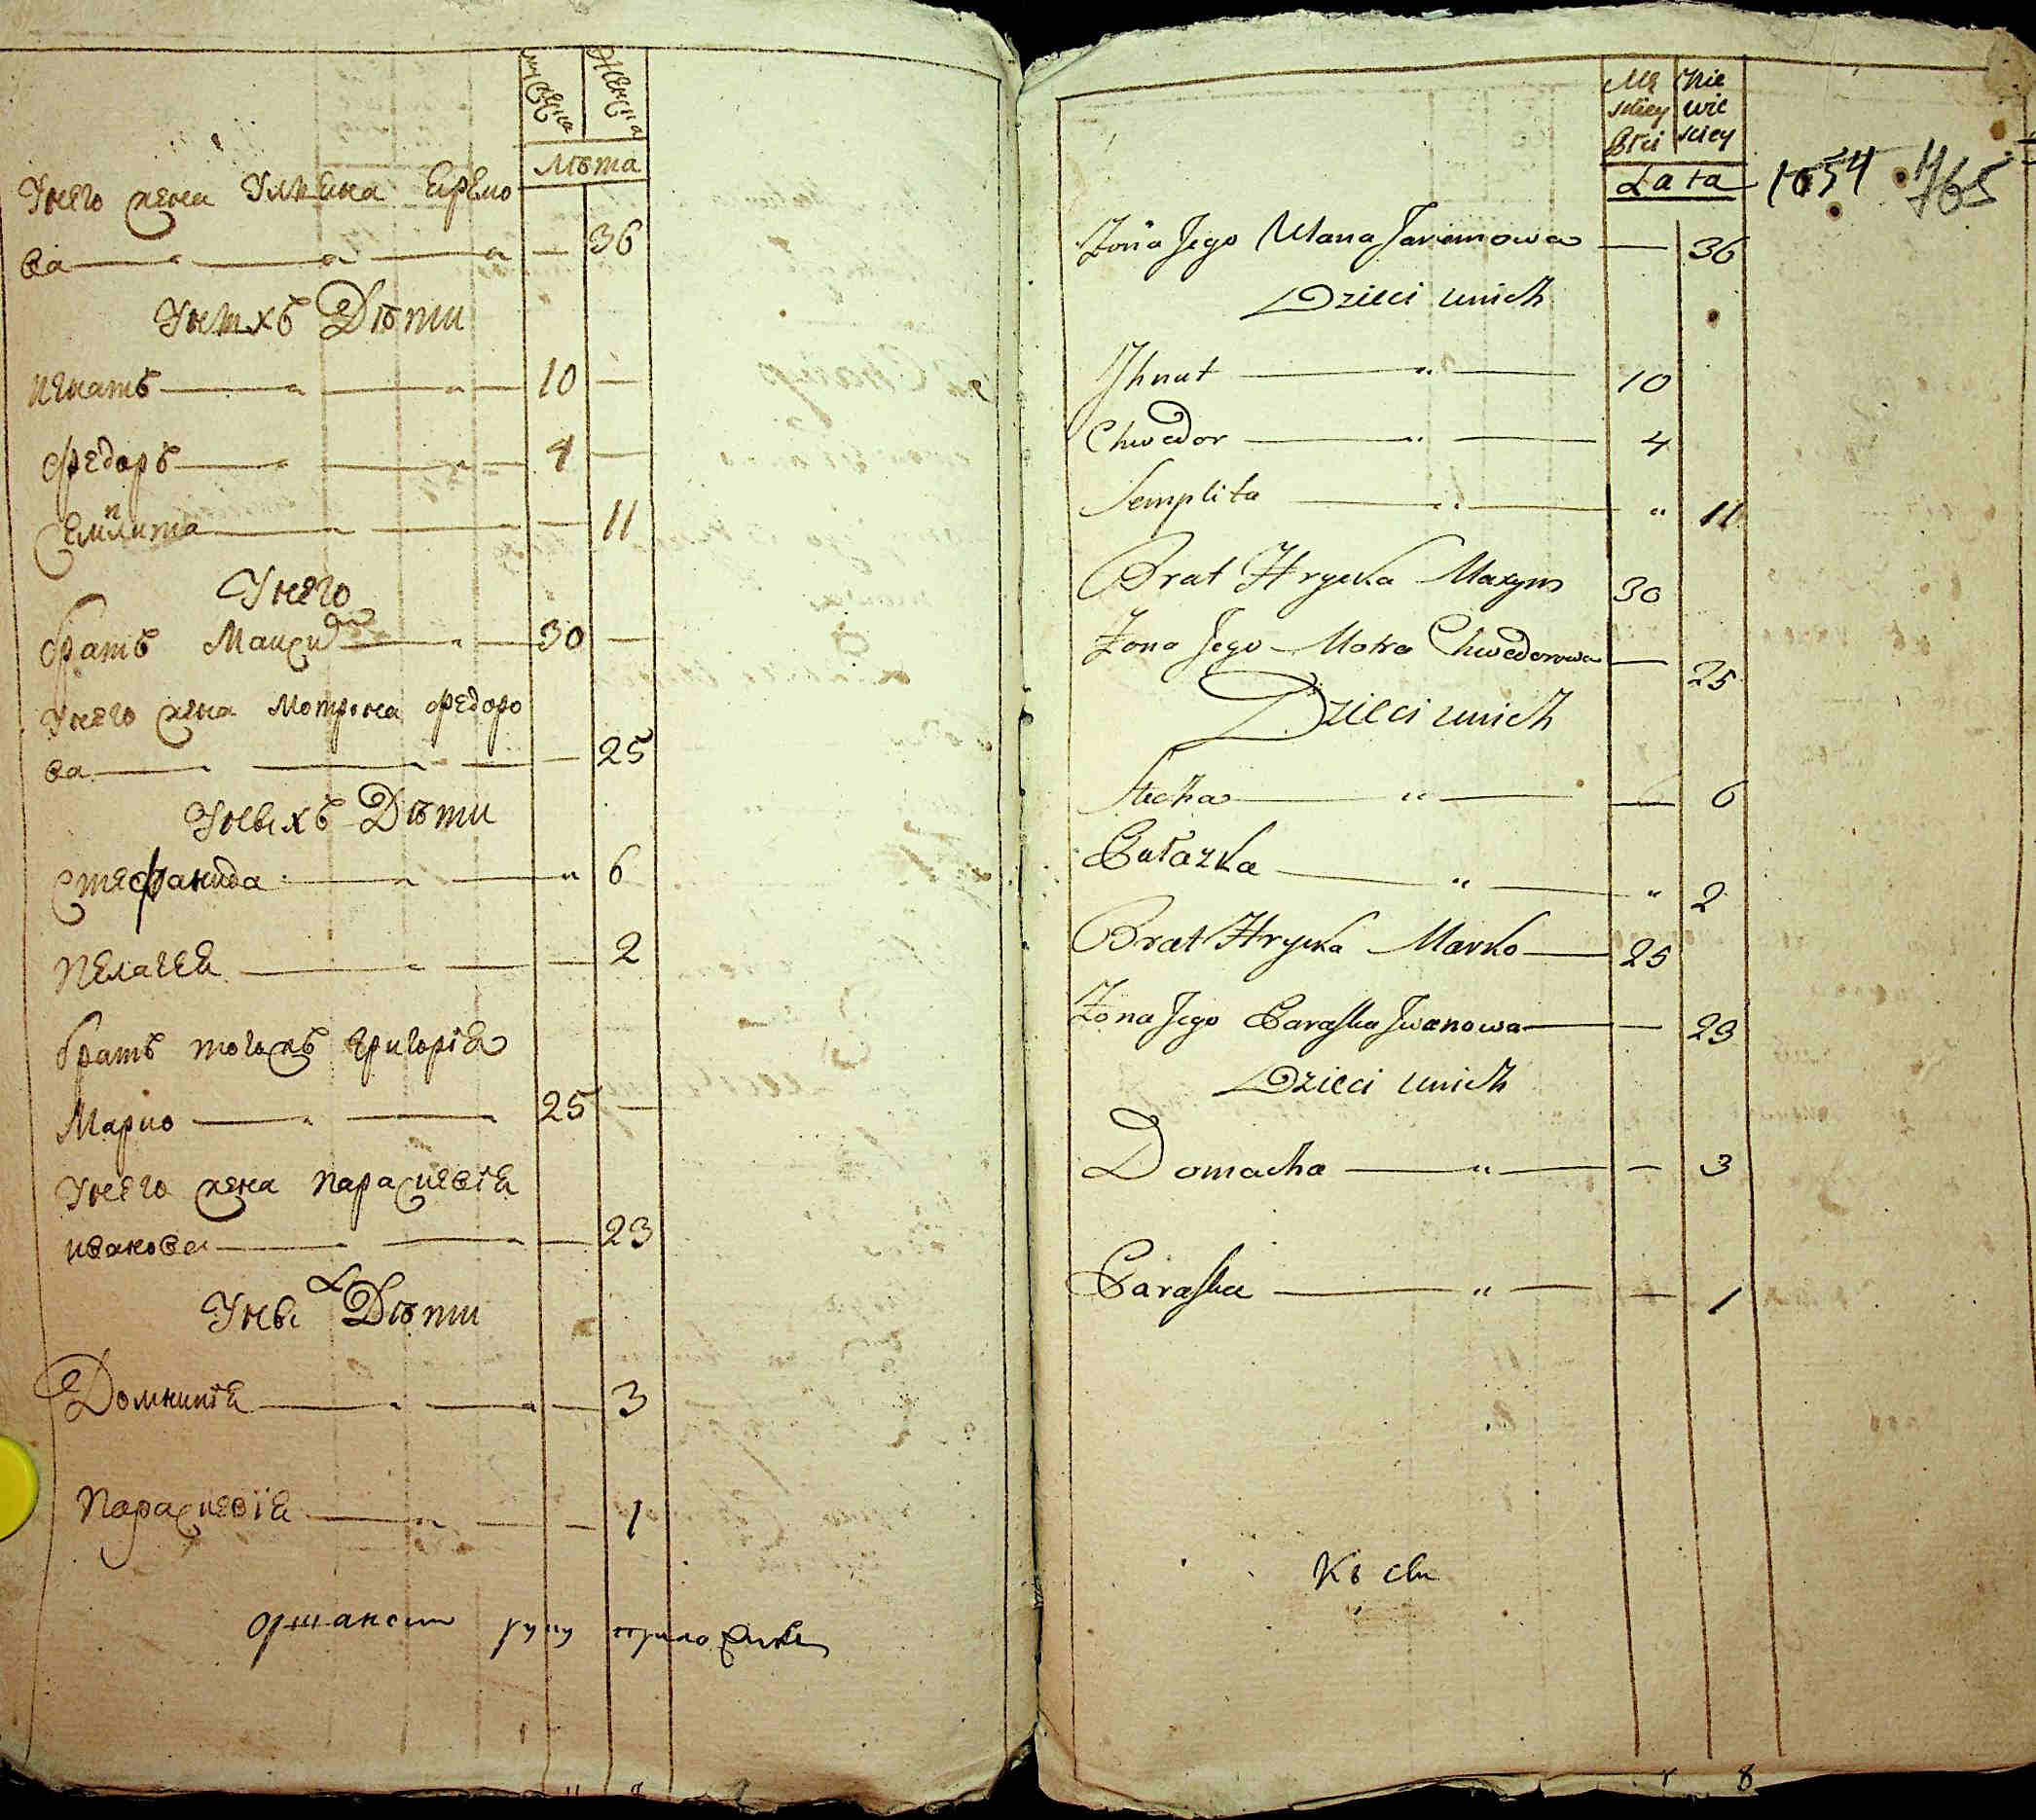 мужеска
женска
лѣта
У него жена Ульяна Ефремо
ва 36
У нихъ Дѣти
игнатъ 10
федоръ 4
Семплита 11
У него
братъ Максим 30
У него жена мотрона федоро
ва 25
У ныхъ Дѣти
Стефанида 6
пелагея 2
братъ тогожъ григория
Марко 25
У него жена параскевiя
иванова 23
У ных Дѣти
Домникiя 3
параскевiя 1
руку приложилъ
Mę Nie
skiey wie
Płci skiey
Lata
1054 765
Żona Jego Ulana Jaremowa 36
Dzieci u nich
Jhnat 10
Chwedor 4
Semplita 11
Brat Hrycka Maxym 30
Żona Jego Motra Chwedorowa 25
Dzieci u nich
Stecha 6
Pałazka 2
Brat Hrycka Marko 25
Żona Jego Paraska Jwanowa 23
Dzieci u nich
Domacha 3
Paraska 1
Къ сей